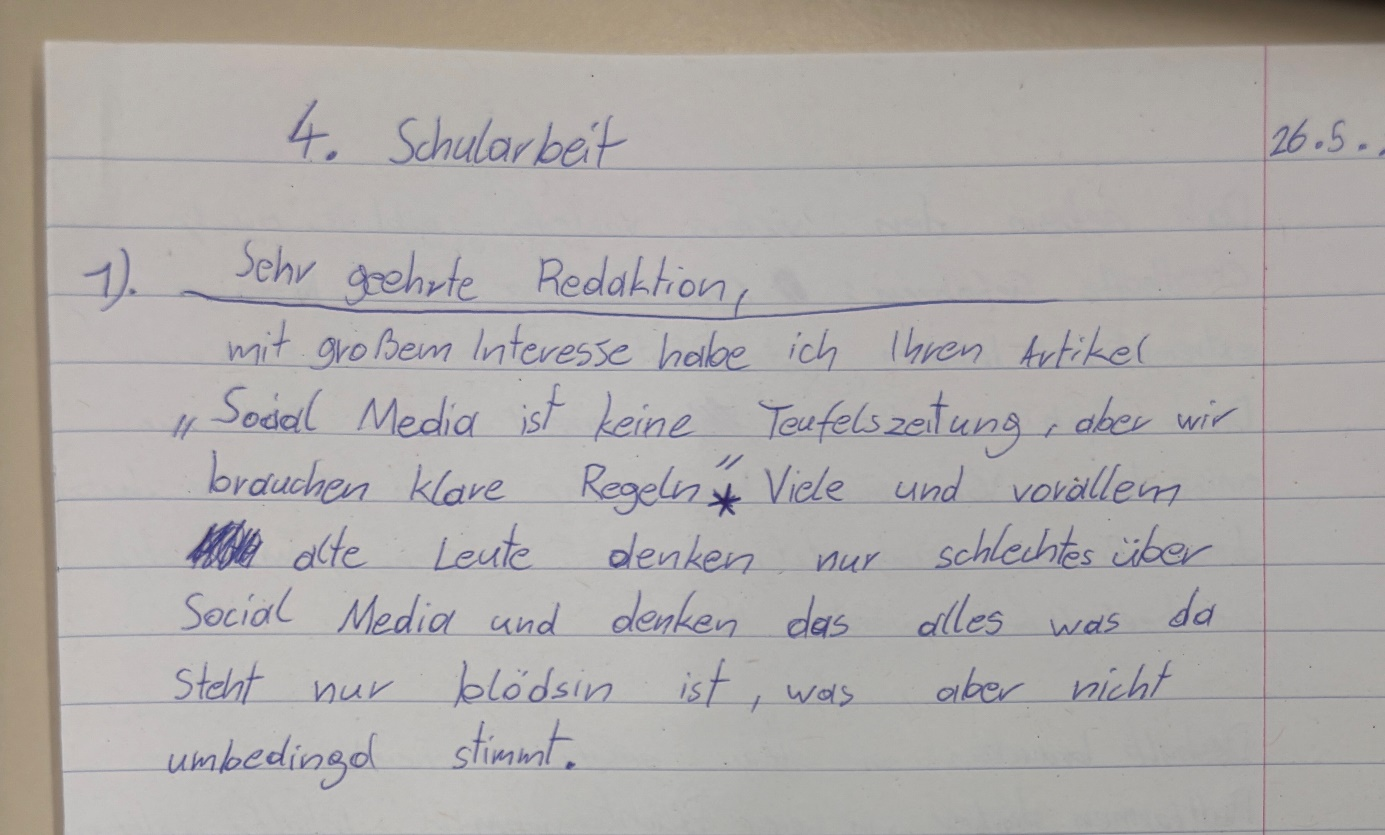 4. Schularbeit 26.5..
1). Sehr geehrte Redaktion,
mit großem Interesse habe ich Ihren Artikel
„Social Media ist keine Teufelszeitung, aber wir
brauchen klare Regeln"* Viele und vorallem
alte Leute denken nur schlechtes über
Social Media und denken das alles was da
steht nur blödsin ist, was aber nicht
umbedingd stimmt.